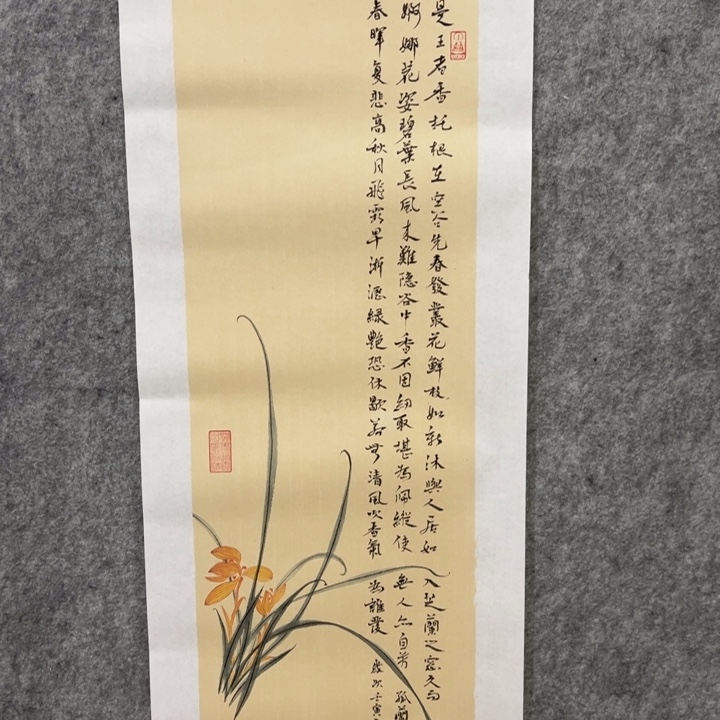 是王者香托根在空谷先春發叢花鮮枝如新沐與人居如入芝蘭之室久而
婀娜花姿碧葉長風来難隐谷中香不因紉取堪為佩縱使無人亦自芳孤蘭
春暉复悲高秋月飛霜早淅瀝緑艷恐休歇若無清風吹香氣為誰發歲次壬寅